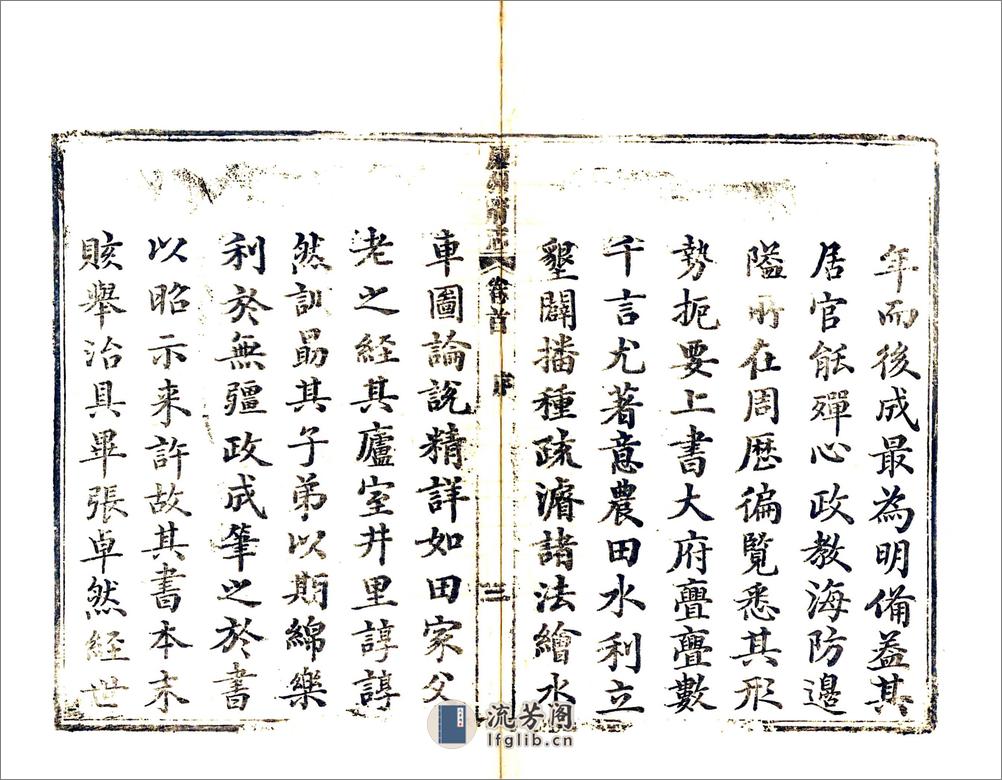 年而後成最為明備葢其
居官能殫心政教海防邉
隘所在周歷徧覽悉其形
勢扼要上書大府亹亹數
千言尤著意農田水利立
墾闢播種疏濬諸法繪水
卷首
序
三
車圖論說精詳如田家父
老之經其廬室井里諄諄
然訓勗其子弟以期綿樂
利於無疆政成筆之於書
以昭示来許故其書本末
賅舉治具畢張卓然經世
流芳阁
lfglib.cn